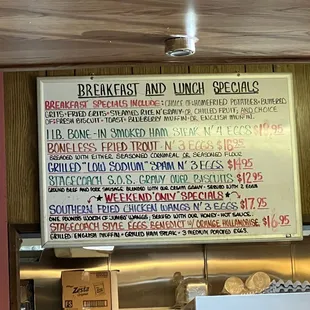 BREAKFAST AND LUNCH SPECIALS
BREAKFAST SPECIALS INCLUDE: CHOICE OF HOMEFRIED POTATOES • BUTTERED
GRITS • FRIED GRITS • STEAMED RICE N' GRAVY OR CHILLED FRUIT, AND CHOICE
OF: FRESH BISCUIT - TOAST - BLUEBERRY MUFFIN OR ENGLISH MUFFIN.
1 LB. BONE-IN SMOKED HAM STEAK N' 4 EGGS $19.95
BONELESS FRIED TROUT N' 3 EGGS $16.95
BREADED WITH EITHER, SEASONED CORNMEAL OR SEASONED FLOUR
GRILLED "LOW SODIUM" SPAM N' 3 EGGS $14.95
STAGECOACH S.O.S. GRAVY OVER BISCUITS $12.95
GROUND BEEF AND PORK SAUSAGE BLENDED WITH OUR CREAM GRAVY - SERVED WITH 2 EGGS
"WEEKEND ONLY" SPECIALS
SOUTHERN FRIED CHICKEN WANGS N' 3 EGGS $17.95
ONE POUND OF JUMBO WANGS, SERVED WITH OUR HONEY-HOT SAUCE
STAGECOACH STYLE EGGS BENEDICT W/ ORANGE HOLLANDAISE $16.95
GRILLED ENGLISH MUFFIN - GRILLED HAM STEAK - 3 MEDIUM POACHED EGGS.
Zesta